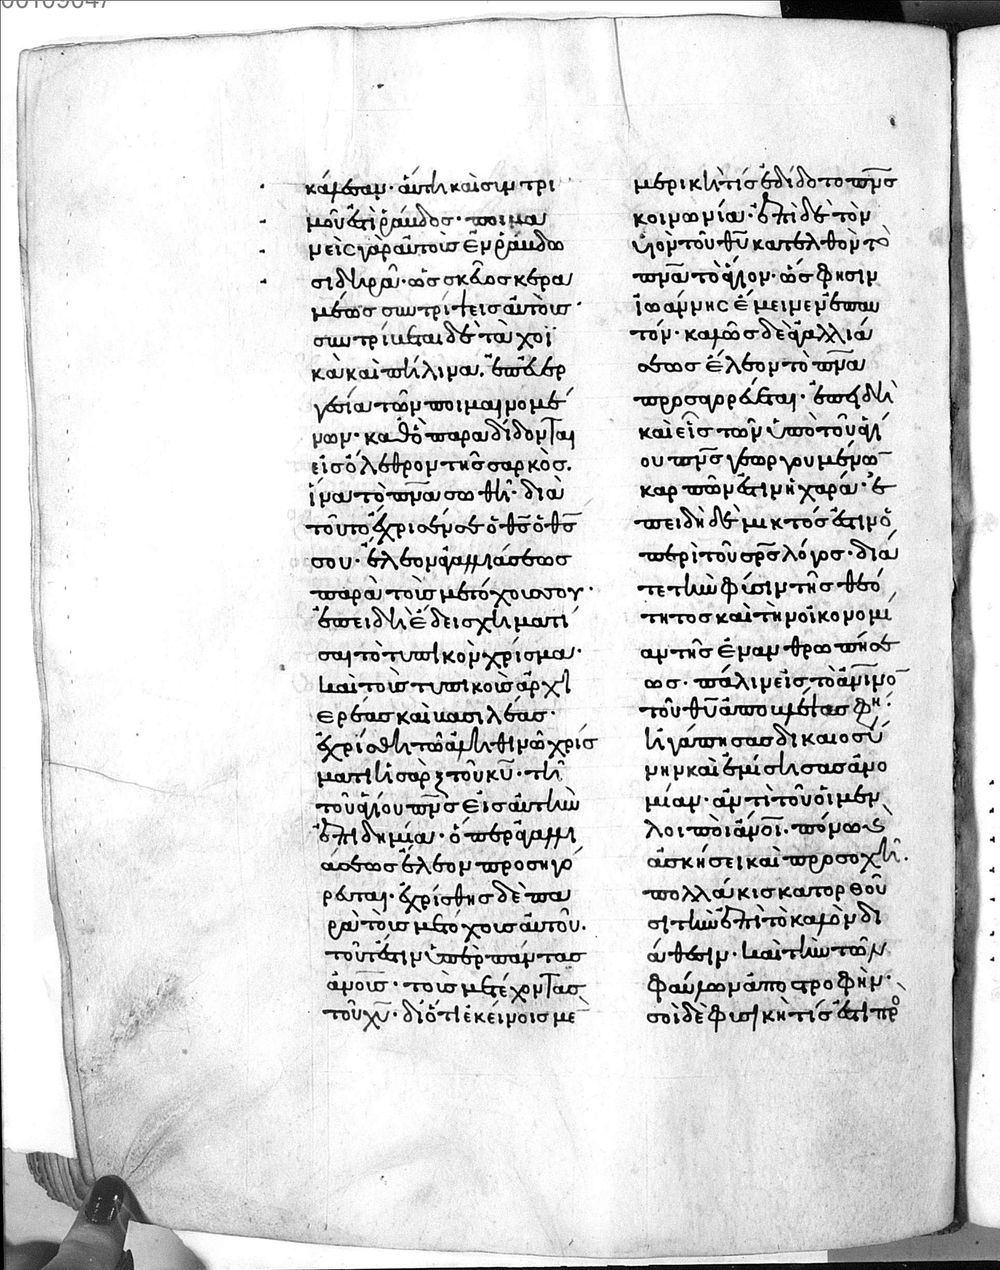 κάμεναν· αὕτη καὶ σιντρι
μοῦ ἐστὶ ῥάβδος· ποιμα
νεῖς γὰρ αὐτοὺς ἐν ῥάβδω
σιδηρᾶ· ὡς σκεῦος κερα
μέως συντρίψεις αὐτούς·
συντρίβεται δὲ τὰ χοϊ
κὰ καὶ πήλινα, ἐπ' εὐερ
γεσία τῶν ποιμαινομέ
νων· καθὸ παραδίδονται
εἰς ὄλεθρον τῆς σαρκὸς.
ἵνα τὸ πνα σωθῆ· διὰ
τοῦτο ἔχρισέν σε ὁ θς ὁ θς
σου· ἔλεον ἀγαλλιάσεως
παρὰ τοὺς μετόχους σου·
ἐπειδὴ ἔδει σχηματί
σαι τὸ τυπικὸν χρίσμα·
καὶ τοῖς τυπικοῖς ἀρχι
ερέας καὶ βασιλέας·
ἐχρίσθη τῶ ἀληθινῶ χρίσ
ματι ἡ σὰρξ τοῦ κυ· τῆ
τοῦ ἁγίου πνς εἰς αὐτὴν
ἐπιδημία· ὅπερ ἀγαλλι
άσεως ἔλεον προσηγό
ρευται· ἐχρίσθης δὲ πα
ρὰ τοὺς μετόχους αὐτοῦ.
τουτέστιν ὑπὲρ πάντας
ἀνους· τοὺς μετέχοντας
τοῦ χυ· διότι ἐκείνοις με
μερική τις ἐδίδοτο πνς
κοινωνία· ἐπὶ δὲ τὸν
υἱὸν τοῦ θυ κατελθὸν τὸ
πνα τὸ ἅγιον· ὥς φησιν
ἰωάννης ἔμεινεν ἐπ' αυ
τόν· καλῶς δὲ ἀγαλλιά
σεως ἔλεον τὸ πνα
προσαγορεύεται· ἐπειδὴ
καὶ εἷς τῶν ὑπὸ τοῦ ἁγί
ου πνς γεωργουμένων
καρπῶν ἐστιν ἡ χαρά· ἐ
πειδὴ δὲ μικτός ἐστιν ὁ
περὶ τοῦ σρς λόγος· διά
τε τὴν φύσιν τῆς θεό
τητος καὶ τὴν οἰκονομί
αν τῆς ἐνανθρωπήσε
ως· πάλιν εἰς τὸ ἀνινον
τοῦ θυ ἀποβλέψας φη·
ἠγάπησας δικαιοσύ
νην καὶ ἐμίσησας ἀνο
μίαν· ἀντὶ τοῦ οἱ μὲν
λοιποὶ ἀνοι· πόνω καὶ
ἀσκήσει καὶ προσοχῆ.
πολλάκις κατορθοῦ
σι τὴν ἐπὶ τὸ καλὸν δι
άθεσιν· καὶ τὴν τῶν
φαύλων ἀποστροφήν·
σοὶ δὲ φυσική τίς ἐστι προ